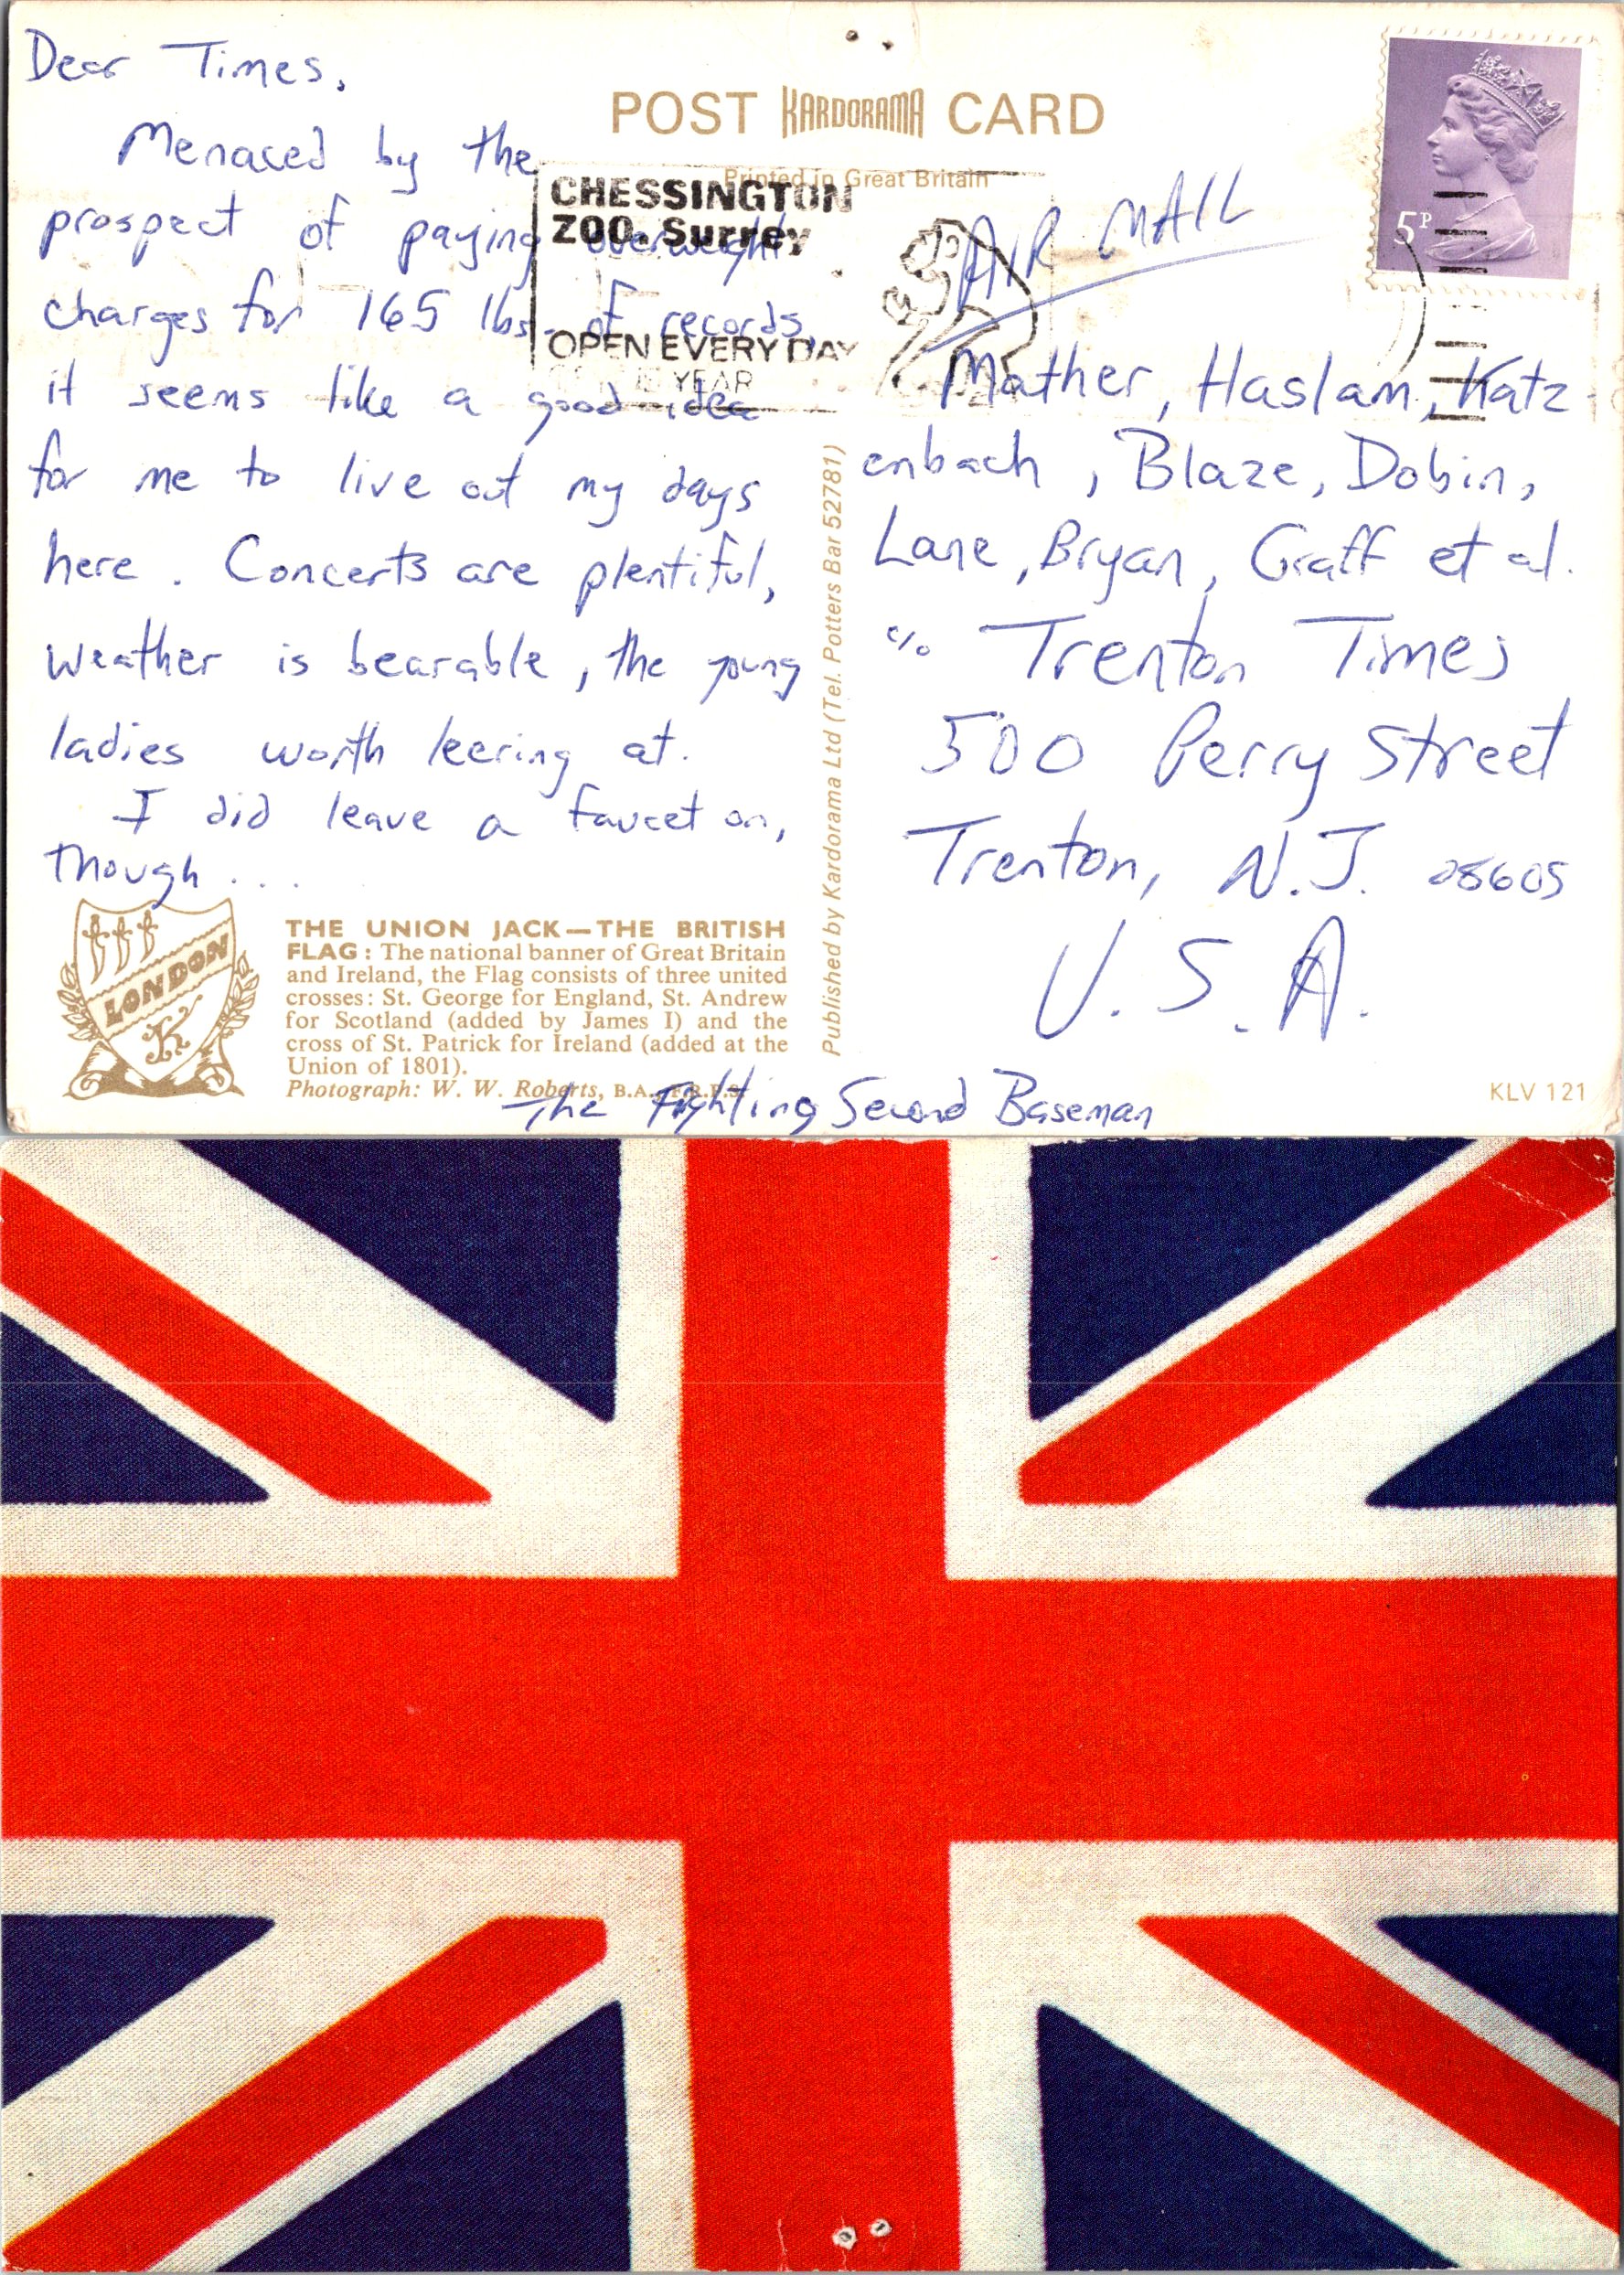 Dear Times,
Menaced by the
prospect of paying overweight
charges for 165 lbs. of records,
it seems like a good idea
for me to live out my days
here. Concerts are plentiful,
weather is bearable, the young
ladies worth leering at.
I did leave a faucet on,
though...
POST KARDORAMA CARD
Printed in Great Britain
CHESSINGTON
ZOO. Surrey
OPEN EVERY DAY
YEAR
AIR MAIL
5P
Mather, Haslam, Katz-
enbach, Blaze, Dobin,
Lane, Bryan, Graff et al.
c/o Trenton Times
500 Perry Street
Trenton, N.J. 08605
U.S.A.
Published by Kardorama Ltd (Tel. Potters Bar 52781)
LONDON
K
THE UNION JACK—THE BRITISH
FLAG: The national banner of Great Britain
and Ireland, the Flag consists of three united
crosses: St. George for England, St. Andrew
for Scotland (added by James I) and the
cross of St. Patrick for Ireland (added at the
Union of 1801).
Photograph: W. W. Roberts, B.A., F.R.P.S.
KLV 121
The Fighting Second Baseman